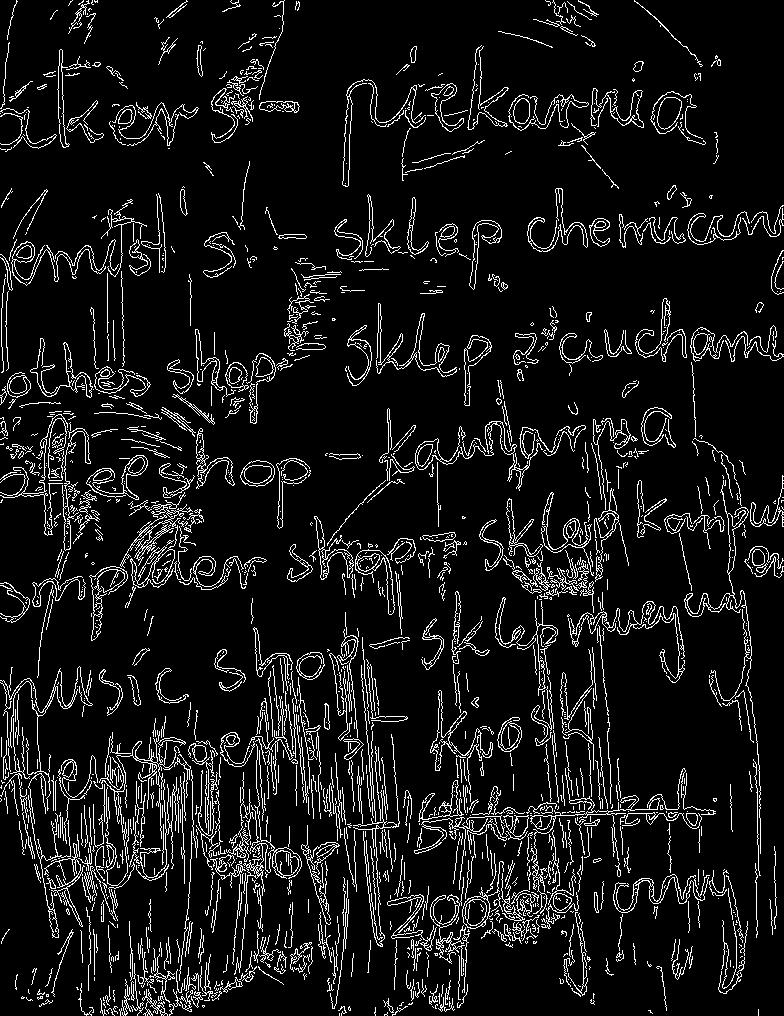 aker's - piekarnia
hemist's - sklep chemiczn
othes shop - sklep z ciuchami
offee shop - kawiarnia
omputer shop - sklep komput
music shop - sklep muzyczny
newsagent's - kiosk
pet shop - sklep z zat
zoologiczny